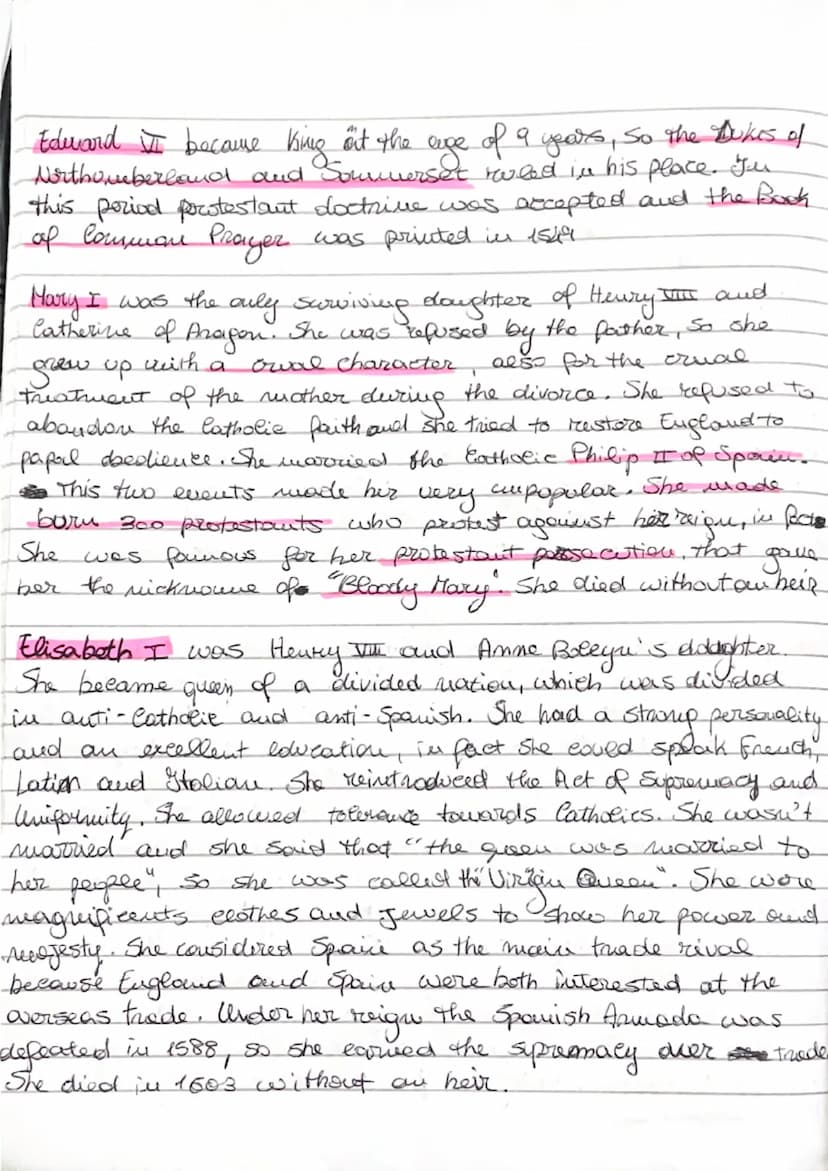 Edward VI became King at the age of 9 years, so the Dukes of
Northumberland and Sommerset ruled in his place. In
this period protestant doctrine was accepted and the Book
of Common Prayer was printed in 1549
Mary I was the only surviving daughter of Henry VIII and
Catherine of Aragon. She was refused by the father, so she
grew up with a crual character, also for the crual
treatment of the mother during the divorce. She refused to
abandon the Catholic faith and she tried to restore England to
papal obedience. She married the Catholic Philip II of Spain.
This two events made her very unpopular. She made
burn 300 protestants who protest against her reign, in fact
She was famous for her protestant persecution, that gave
her the nickname of "Bloody Mary". She died without an heir
Elisabeth I was Henry VIII and Anne Boleyn's daughter.
She became queen of a divided nation, which was divided
in anti-Catholic and anti-Spanish. She had a strong personality
and an excellent education, in fact she could speak French,
Latin and Italian. She reintroduced the Act of Supremacy and
Uniformity. She allowed tolerance towards Catholics. She wasn't
married and she said that "the queen was married to
her people", so she was called the "Virgin Queen". She wore
magnificents clothes and jewels to show her power and
majesty. She considered Spain as the main trade rival
because England and Spain were both interested at the
overseas trade. Under her reign the Spanish Armada was
defeated in 1588, so she earned the supremacy over trade
She died in 1603 without an heir.